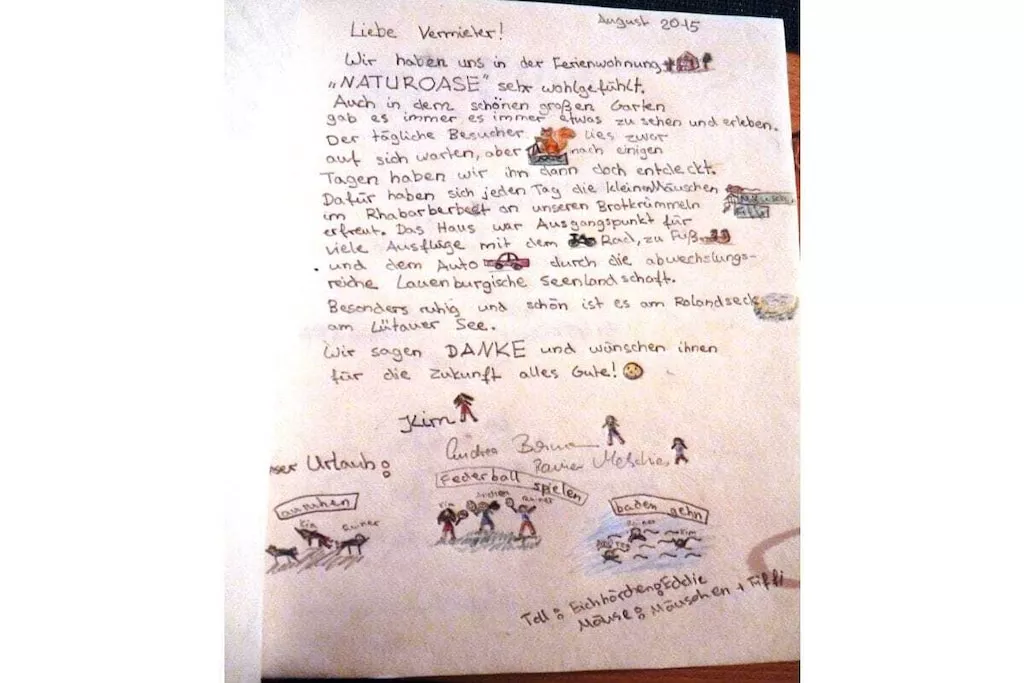 August 2015
Liebe Vermieter!
Wir haben uns in der Ferienwohnung
„NATUROASE" sehr wohlgefühlt.
Auch in dem schönen großen Garten
gab es immer es immer etwas zu sehen und erleben.
Der tägliche Besucher lies zwar
auf sich warten, aber nach einigen
Tagen haben wir ihn dann doch entdeckt.
Dafür haben sich jeden Tag die kleinen Mäuschen
im Rhabarberbeet an unseren Brotkrümmeln
erfreut. Das Haus war Ausgangspunkt für
viele Ausflüge mit dem Rad, zu Fuß
und dem Auto durch die abwechslungs-
reiche Lauenburgische Seenlandschaft.
Besonders ruhig und schön ist es am Rolandseck
am Lütauer See.
Wir sagen DANKE und wünschen ihnen
für die Zukunft alles Gute!
Kim
Andrea
Rainer
ser Urlaub:
ausruhen
Kim Rainer
Federball spielen
Kim Andrea Rainer
baden gehn
Rainer
Andrea Kim
Toll: Eichhörnchen Eddie
Mäuse: Mäuschen + Fiffi